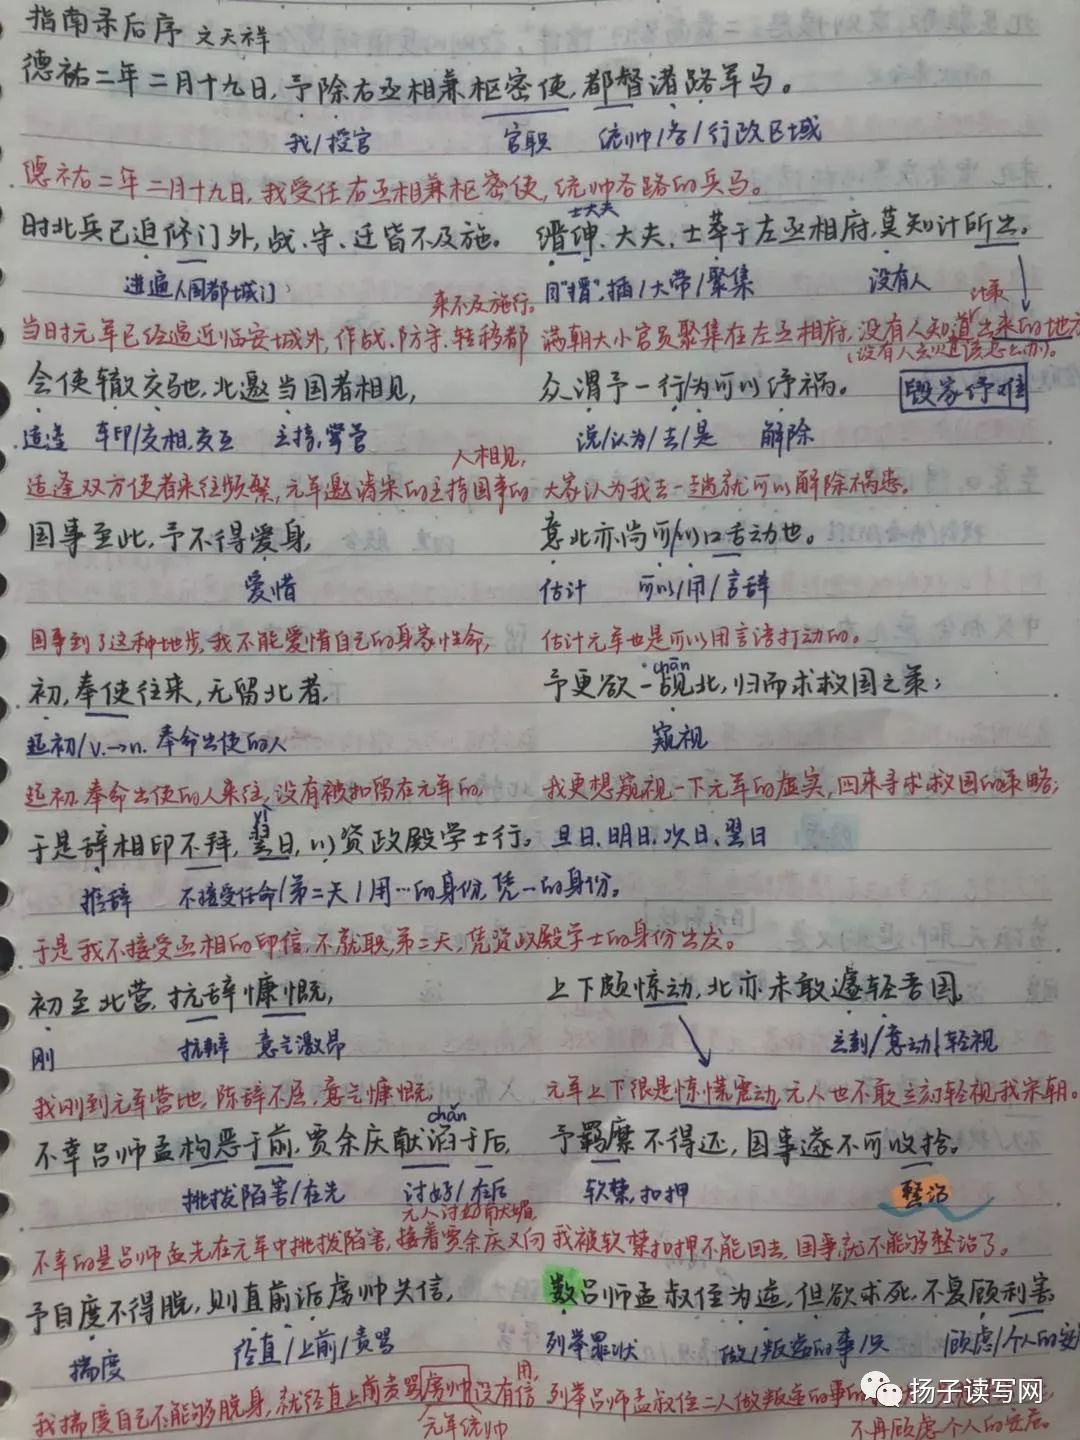 指南录后序 文天祥
德祐二年二月十九日，予除右丞相兼枢密使，都督诸路军马。
我/授官 官职 统帅/各/行政区域
德祐二年二月十九日，我受任右丞相兼枢密使，统帅各路的兵马。
士大夫
时北兵已迫修门外，战、守、迁皆不及施。 缙绅、大夫、士萃于左丞相府，莫知计所出。
进逼/国都城门 同"搢"，插/大带/聚集 没有人
来不及施行。 计策
当日时元军已经逼近临安城外，作战、防守、转移都 满朝大小官员聚集在左丞相府，没有人知道出来的地方
(没有人知道该怎么办)。
会使辙交驰，北邀当国者相见， 众谓予一行/为可以纾祸。 毁家纾难
适逢 车印/交相，交互 主持，掌管 说/认为/去/是 解除
人相见，
适逢双方使者来往频繁，元军邀请宋的主持国事的 大家认为我去一趟就可以解除祸患。
国事至此，予不得爱身， 意北亦尚可/以口舌动也。
爱惜 估计 可以/用/言辞
国事到了这种地步，我不能爱惜自己的身家性命， 估计元军也是可以用言语打动的。
chān
初，奉使往来，无留北者， 予更欲一觇北，归而求救国之策；
起初/v.→n. 奉命出使的人 窥视
起初，奉命出使的人来往，没有被扣留在元军的， 我更想窥视一下元军的虚实，回来寻求救国的策略；
yì
于是辞相印不拜，翌日，以资政殿学士行。 旦日、明日、次日、翌日
推辞 不接受任命/第二天/用…的身份，凭…的身份。
于是我不接受丞相的印信，不就职，第二天，凭资政殿学士的身份出发。
初至北营，抗辞慷慨， 上下颇惊动，北亦未敢遽轻吾国。
刚 抗辩 意气激昂 立刻/意动/轻视
我刚到元军营地，陈辞不屈，意气慷慨， 元军上下很是惊慌震动，元人也不敢立刻轻视我宋朝。
chǎn
不幸吕师孟构恶于前，贾余庆献谄于后， 予羁縻不得还，国事遂不可收拾。
挑拨陷害/在先 讨好/在后 软禁，扣押 整治
元人讨好献媚，
不幸的是吕师孟先在元军中挑拨陷害，接着贾余庆又向 我被软禁扣押不能回去，国事就不能够整治了。
予自度不得脱，则直前诟虏帅失信， 数吕师孟叔侄为逆，但欲求死，不复顾利害。
揣度 径直/上前/责骂 列举罪状 做/叛逆的事/只 顾虑/个人的安
用，
我揣度自己不能够脱身，就径直上前责骂虏帅没有信 列举吕师孟叔侄二人做叛逆的事的
元军统帅 不再顾虑个人的安危。
扬子读写网